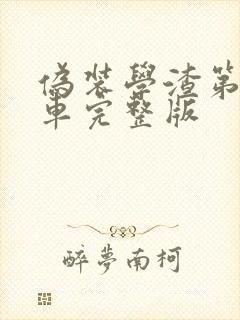 偽裝學渣第
車完整版
醉夢南柯